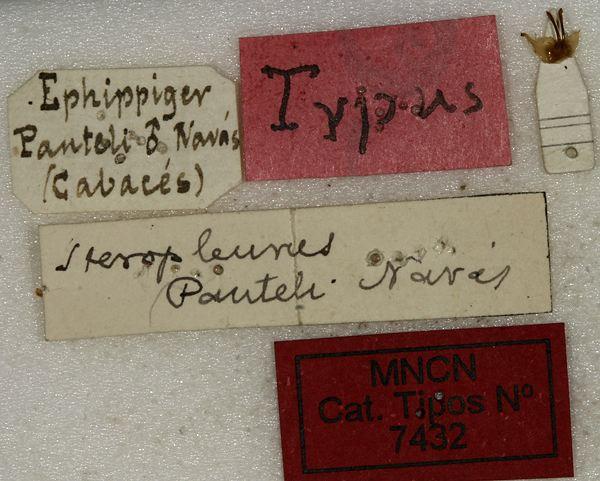 Ephippiger
Panteli ♂ Navás
(Cabacés)
Typus
Steropleurus
Panteli Navás
MNCN
Cat. Tipos Nº
7432